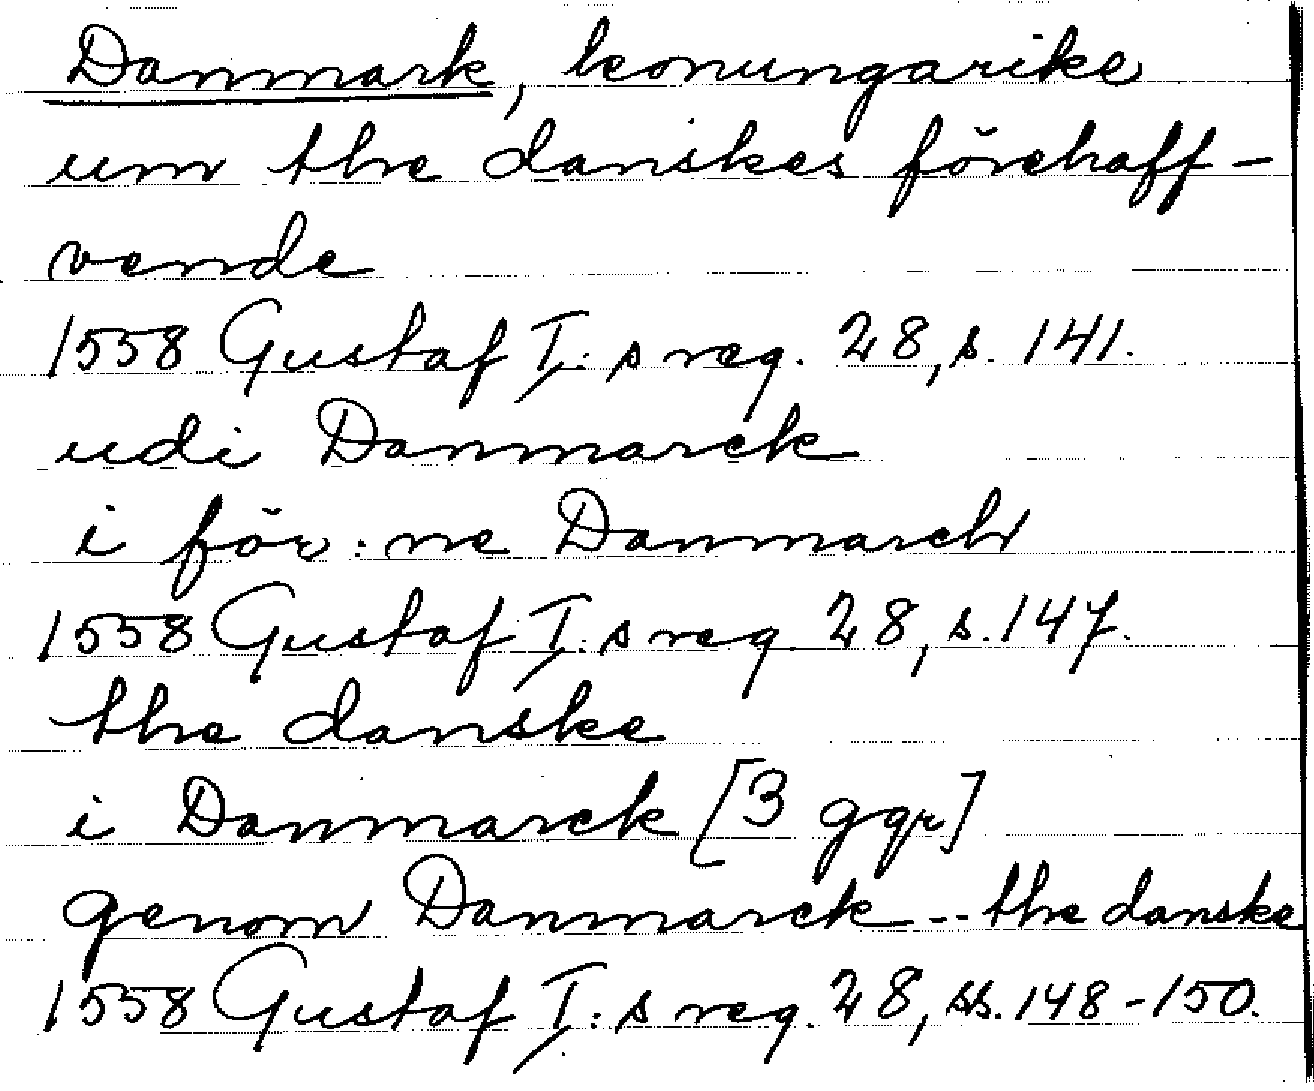 Danmark, konungarike
um the danskes förehaff-
vende
1558 Gustaf I:s reg. 28, s. 141.
udi Danmarck
i för:ne Danmarch
1558 Gustaf I:s reg. 28, s. 147.
the danske
i Danmarck [3 ggr]
genom Danmarck -- the danske
1558 Gustaf I:s reg. 28, ss. 148-150.